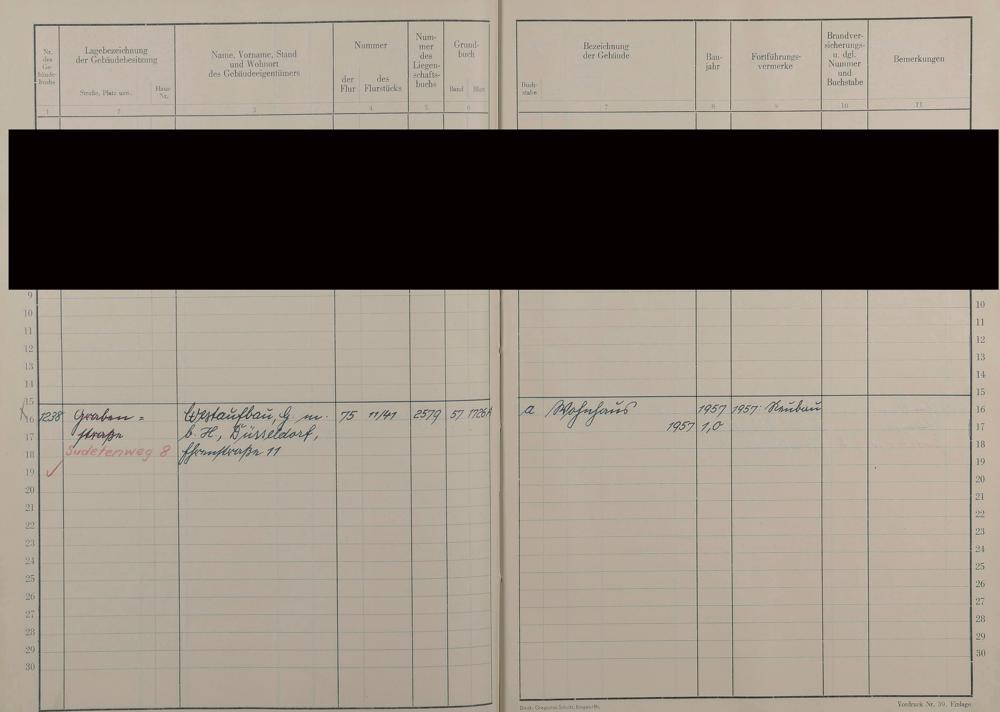 Nr. des Ge- bäude- buchs
Lagebezeichnung der Gebäudebesitzung
Straße, Platz usw.
Haus- Nr.
Name, Vorname, Stand und Wohnort des Gebäudeeigentümers
Nummer
der Flur
des Flurstücks
Num- mer des Liegen- schafts- buchs
Grund- buch
Band
Blatt
Buch- stabe
Bezeichnung der Gebäude
Bau- jahr
Fortführungs- vermerke
Brandver- sicherungs- u. dgl. Nummer und Buchstabe
Bemerkungen
1 2 3 4 5 6 7 8 9 10 11
9
10 10
11 11
12 12
13 13
14 14
15 15
16 1238 Graben = Westaufbau, G. m. 75 11/41 2579 57 1726A a Wohnhaus 1957 1957 Neubau 16
17 straße b. H., Düsseldorf, 1957 1,0 17
18 Sudetenweg 8 Ehrenstraße 11 18
19 19
20 20
21 21
22 22
23 23
24 24
25 25
26 26
27 27
28 28
29 29
30 30
Vordruck Nr. 39, Einlage